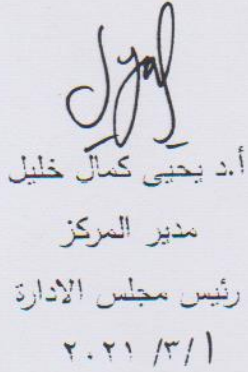 أ.د يحيى كمال خليل
مدير المركز
رئيس مجلس الادارة
٢٠٢١ /٣/١